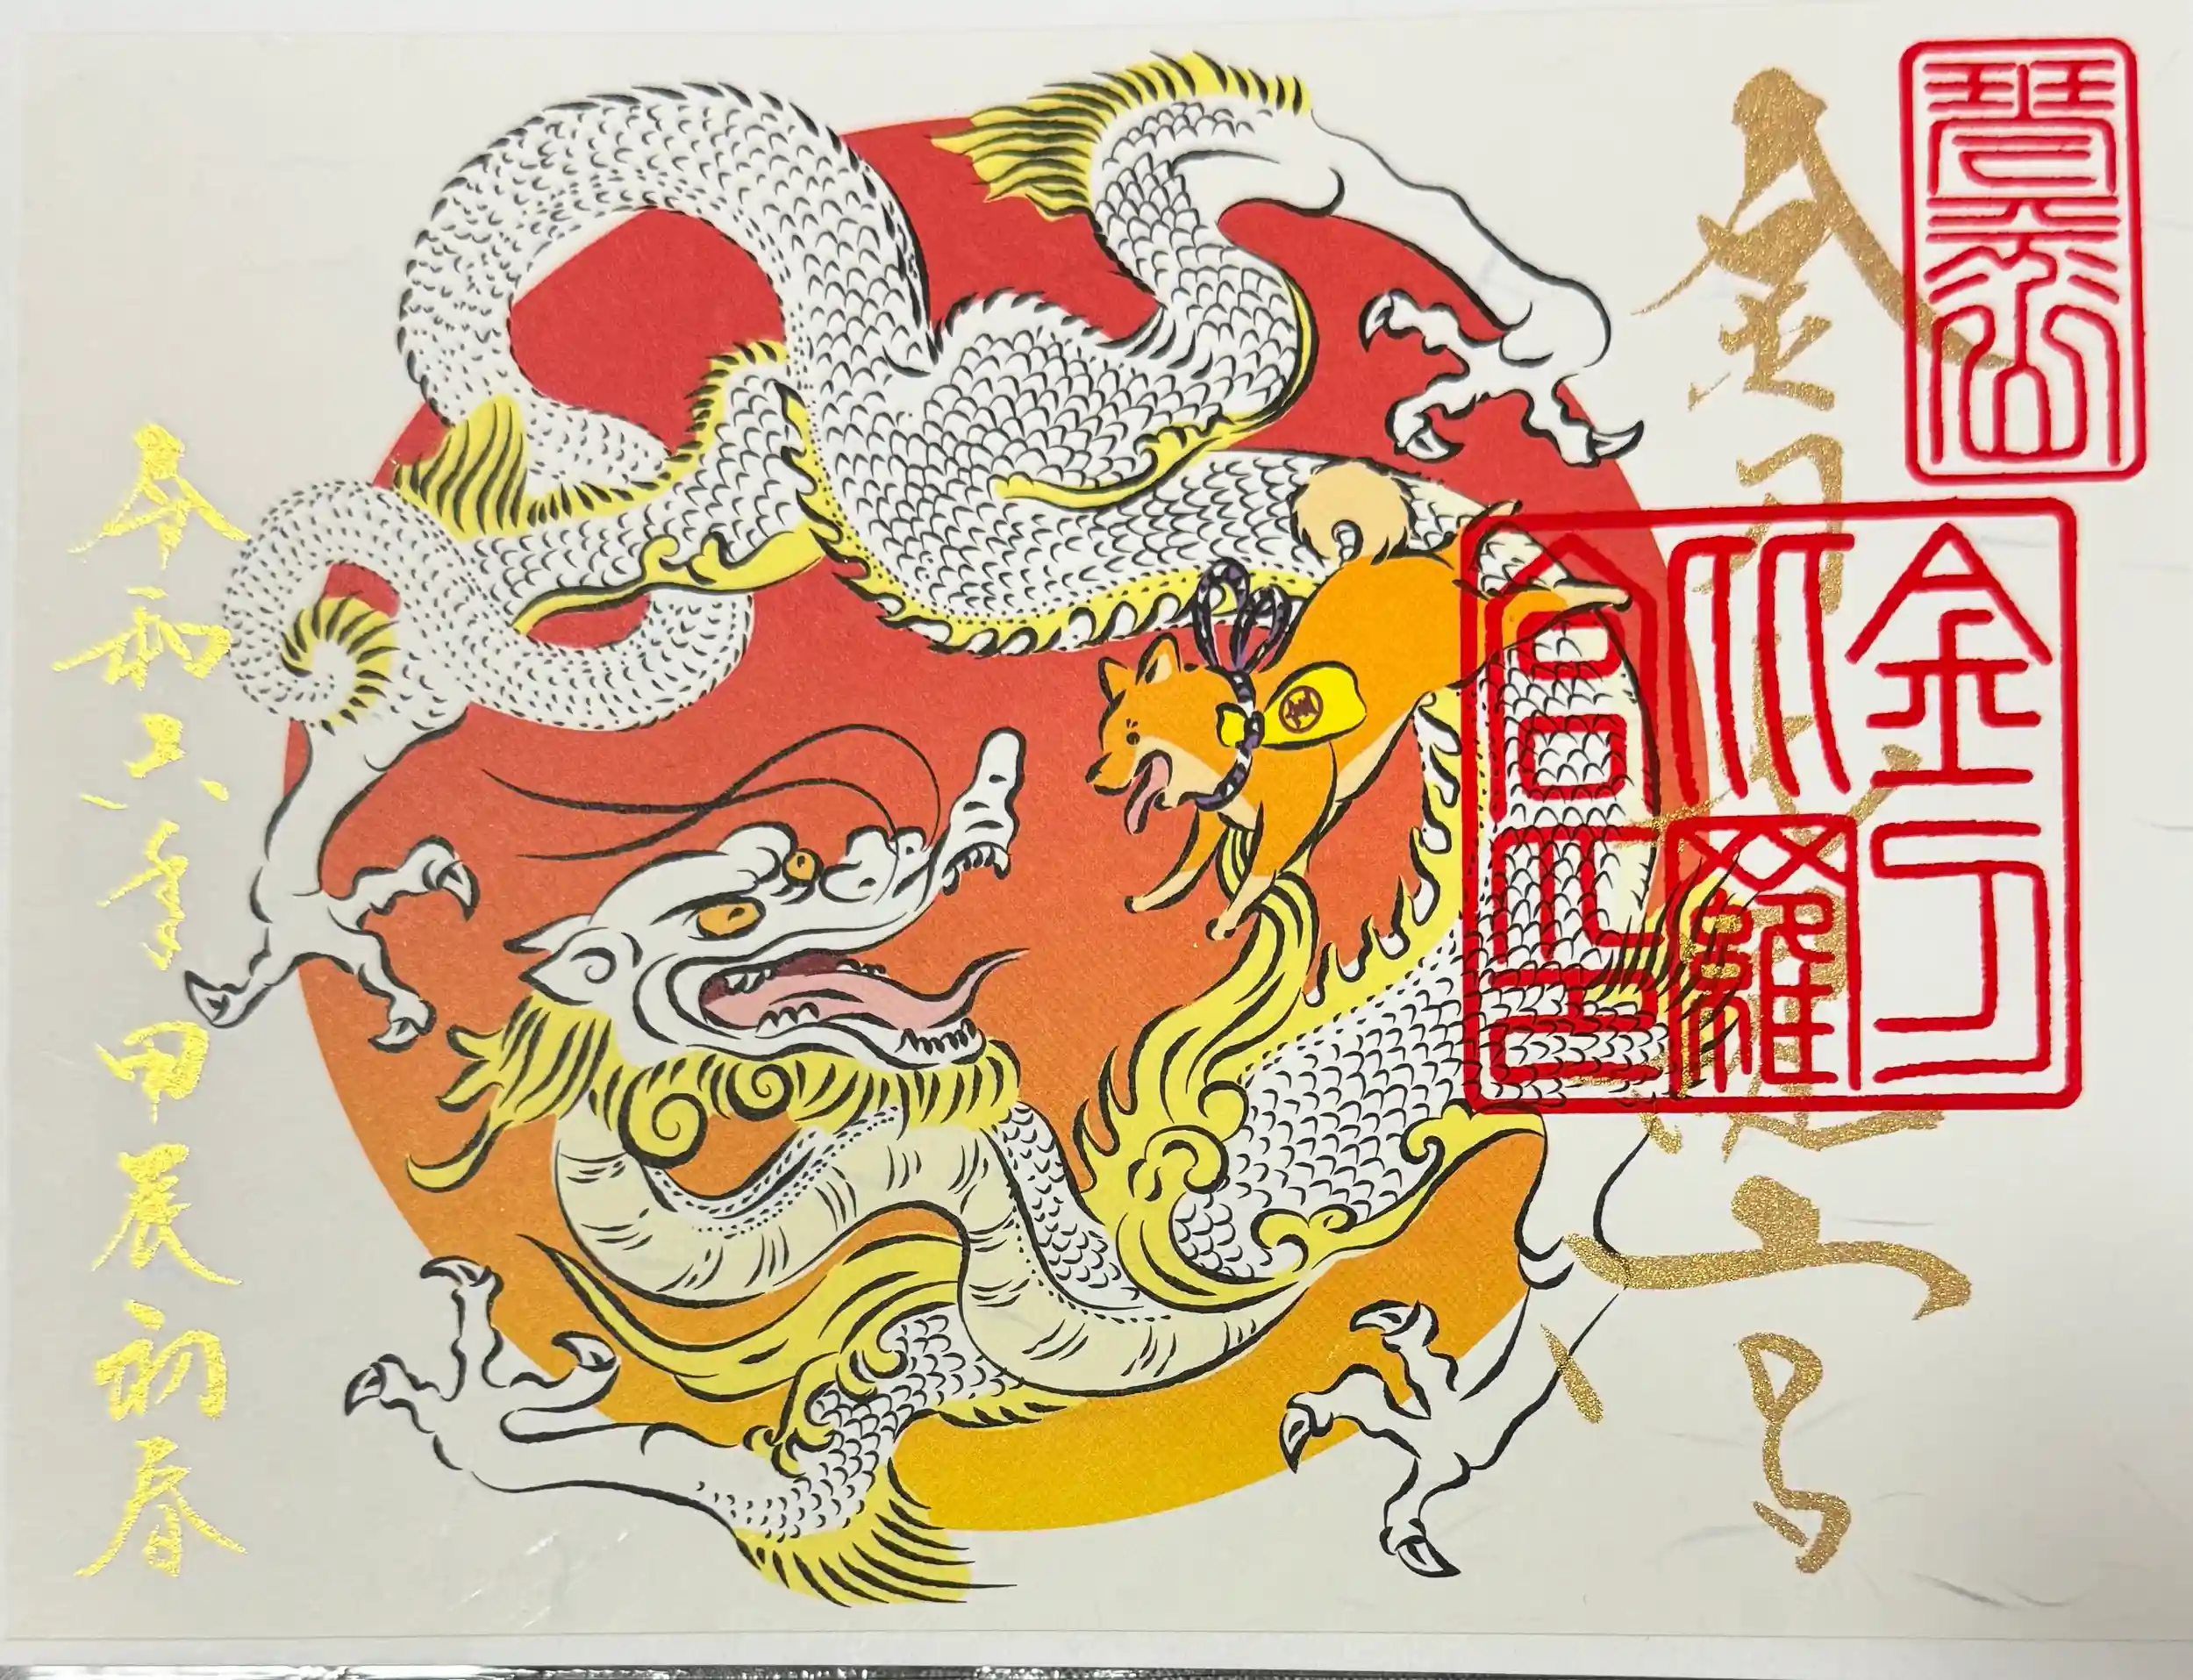 琴平山
金刀比羅宮
金刀
比羅
宮印
令和六年甲辰初春